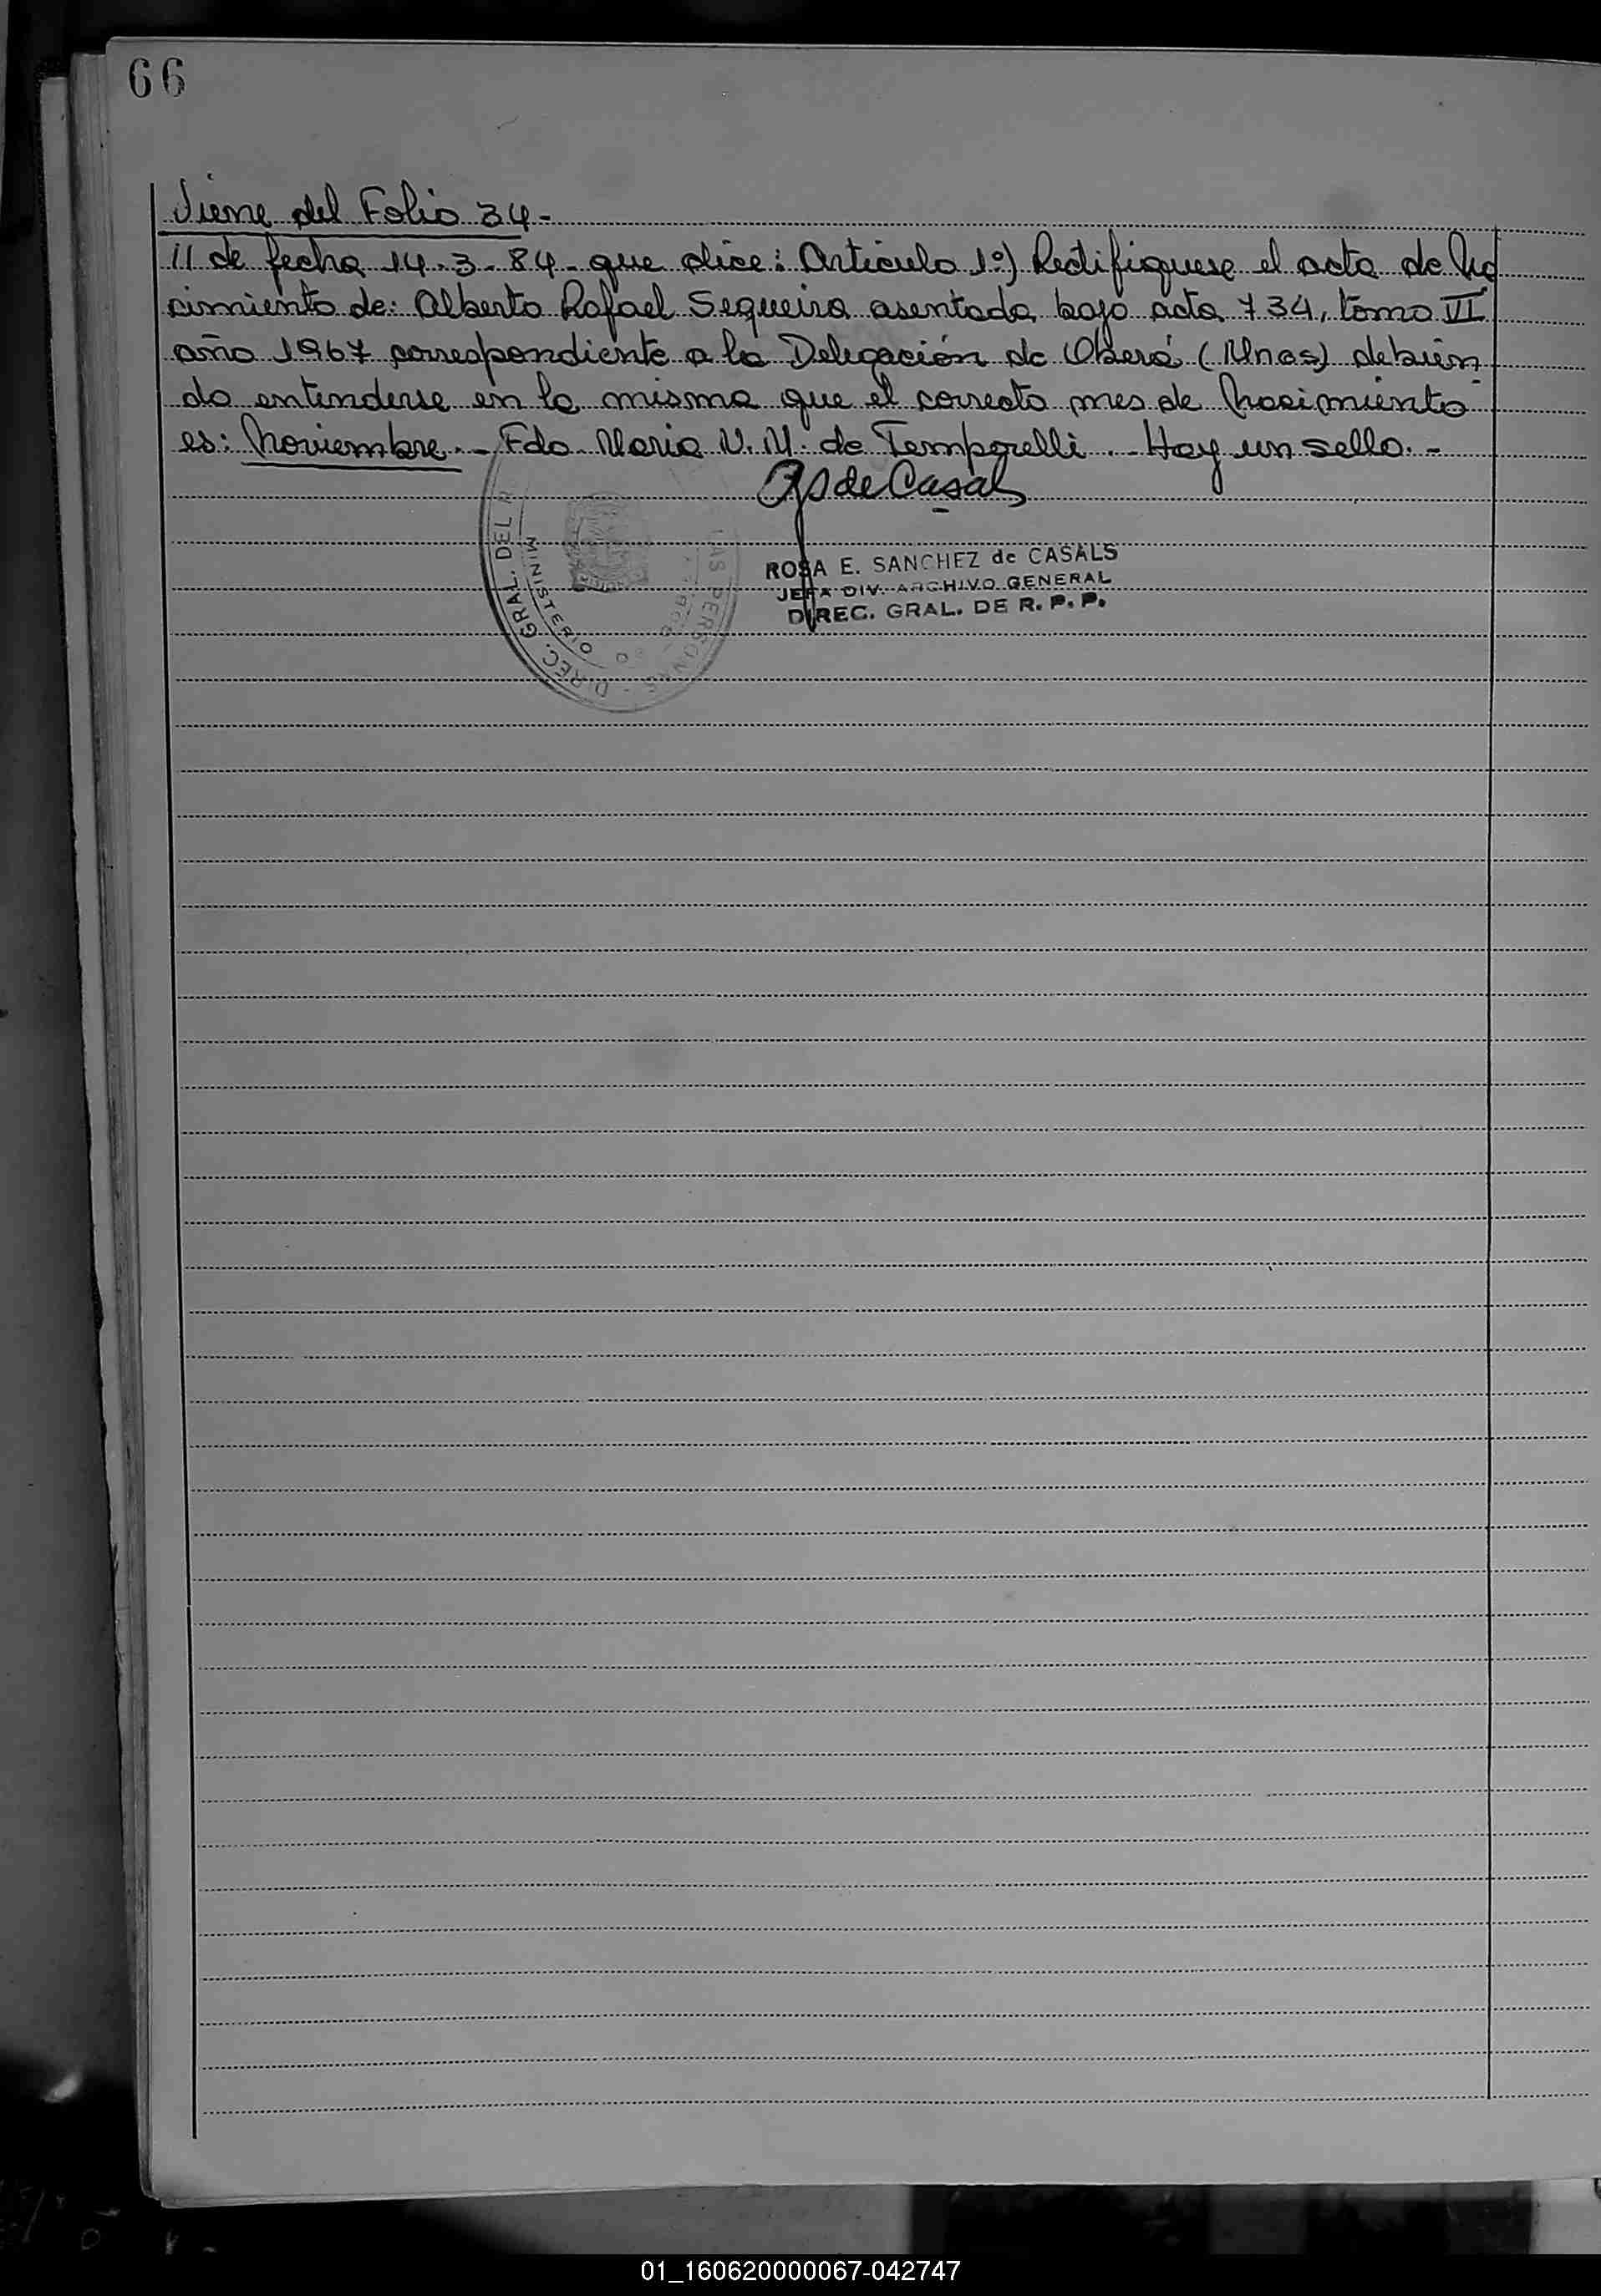 66
Viene del Folio 34-
11 de fecha 14-3-84- que dice: Articulo 1º) Rectifiquese el acta de Na
cimiento de: Alberto Rafael Sequeira asentada bajo acta 734, tomo VI
año 1967 correspondiente a la Delegación de Oberá (Mnes) debién
do entenderse en la misma que el correcto mes de Nacimiento
es: Noviembre.- Fdo. Maria V. M. de Temporelli.- Hay un sello.-
RSdeCasals
DIREC. GRAL. DEL R
LAS PERSONAS
MINISTERIO
ROSA E. SANCHEZ de CASALS
JEFA DIV. ARCHIVO GENERAL
DIREC. GRAL. DE R. P. P.
01_160620000067-042747